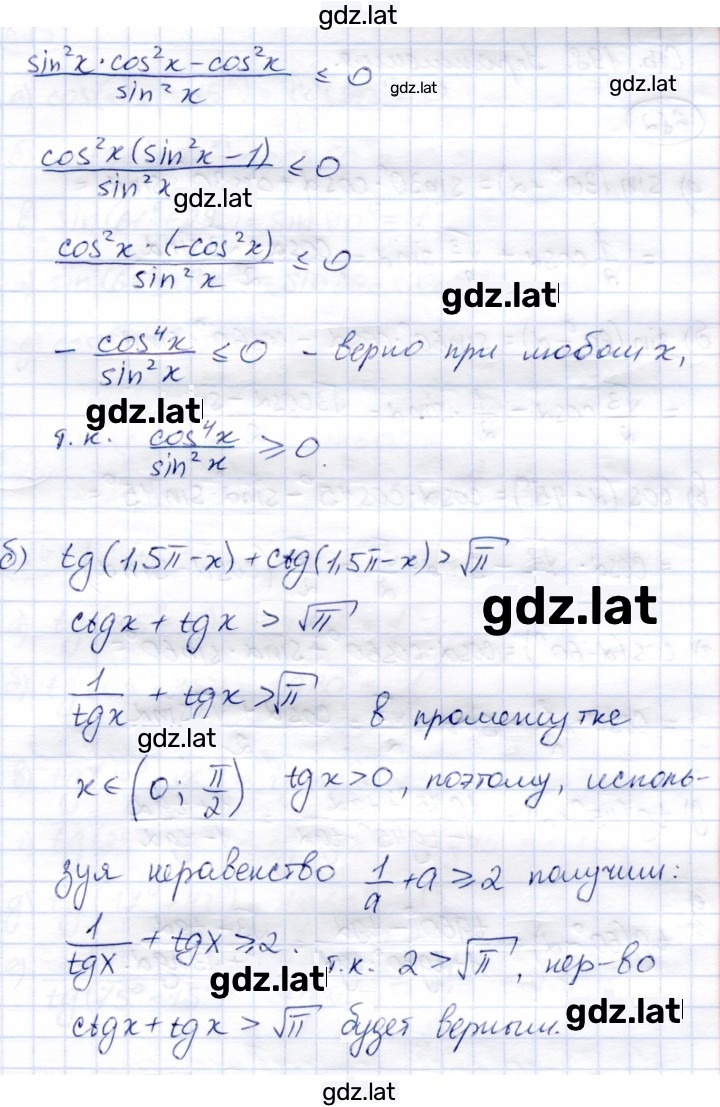 gdz.lat
sin²x · cos²x − cos²x / sin²x ≤ 0
gdz.lat
gdz.lat
cos²x (sin²x − 1) / sin²x ≤ 0
gdz.lat
cos²x · (−cos²x) / sin²x ≤ 0
gdz.lat
− cos⁴x / sin²x ≤ 0 – верно при любом x,
gdz.lat
т. к. cos⁴x / sin²x ≥ 0.
б) tg(1,5π−x) + ctg(1,5π−x) > √π
gdz.lat
ctgx + tgx > √π
1/tgx + tgx > √π в промежутке
gdz.lat
x ∈ (0; π/2) tgx > 0, поэтому, исполь-
зуя неравенство 1/a + a ≥ 2 получим:
1/tgx + tgx ≥ 2. т.к. 2 > √π, нер-во
gdz.lat
ctgx + tgx > √π будет верным.
gdz.lat
gdz.lat